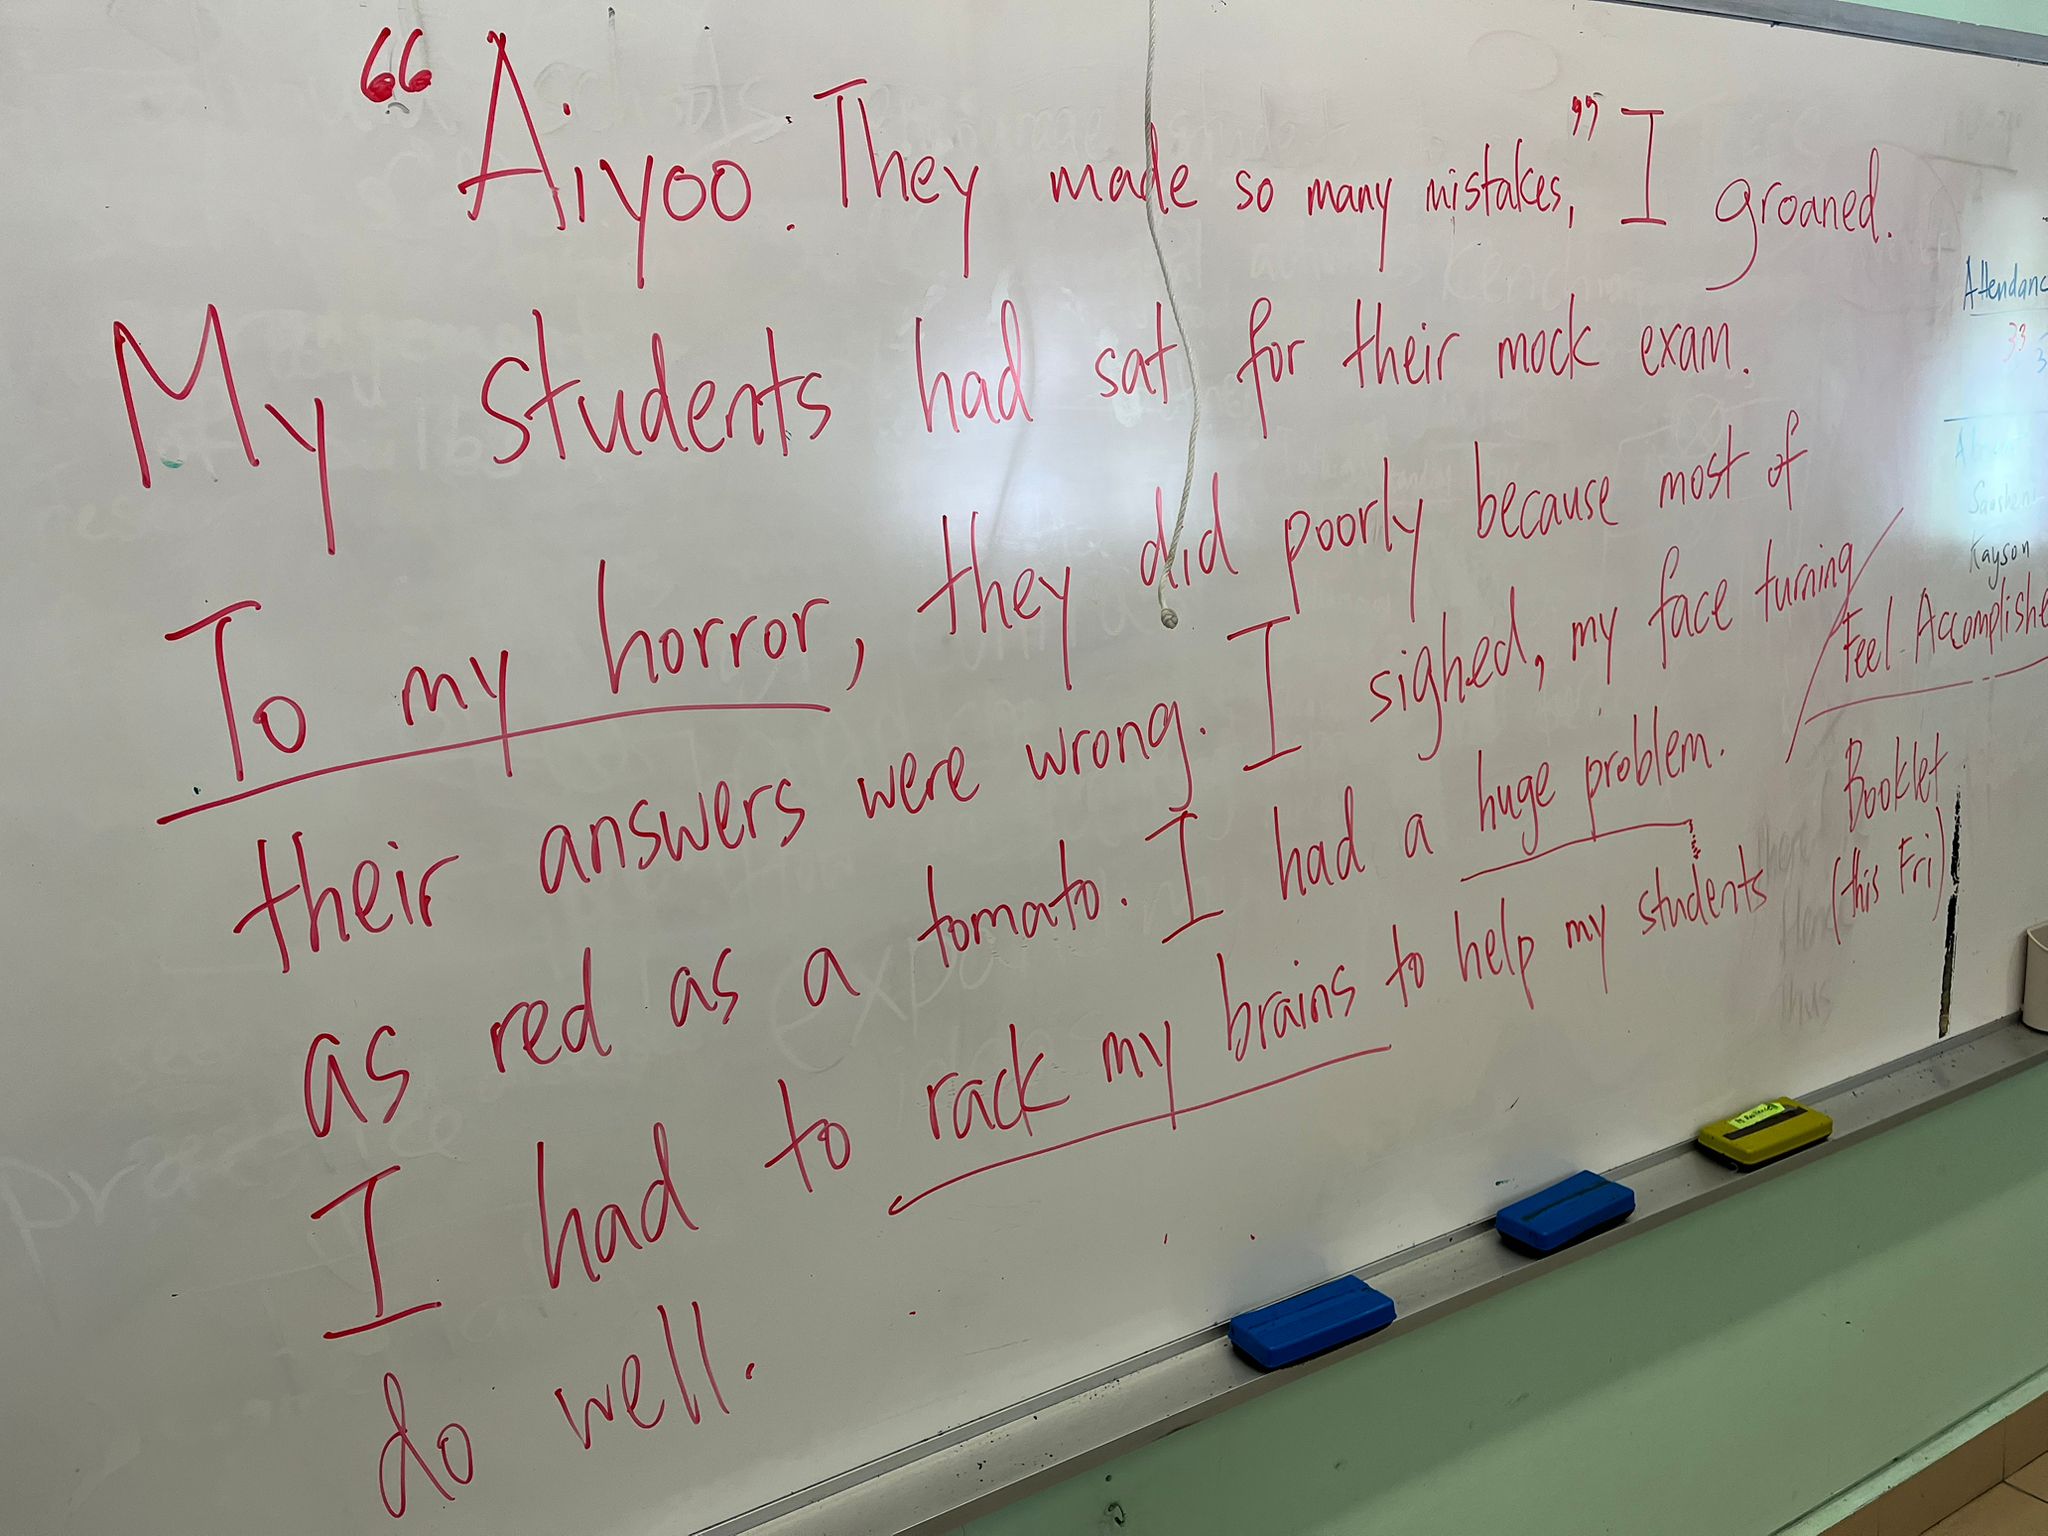 “Aiyoo. They made so many mistakes,” I groaned.
My students had sat for their mock exam.
To my horror, they did poorly because most of
their answers were wrong. I sighed, my face turning
as red as a tomato. I had a huge problem.
I had to rack my brains to help my students
do well.
Attendanc
33
Kayson
Feel Accomplishe
Booklet
(this Fri)